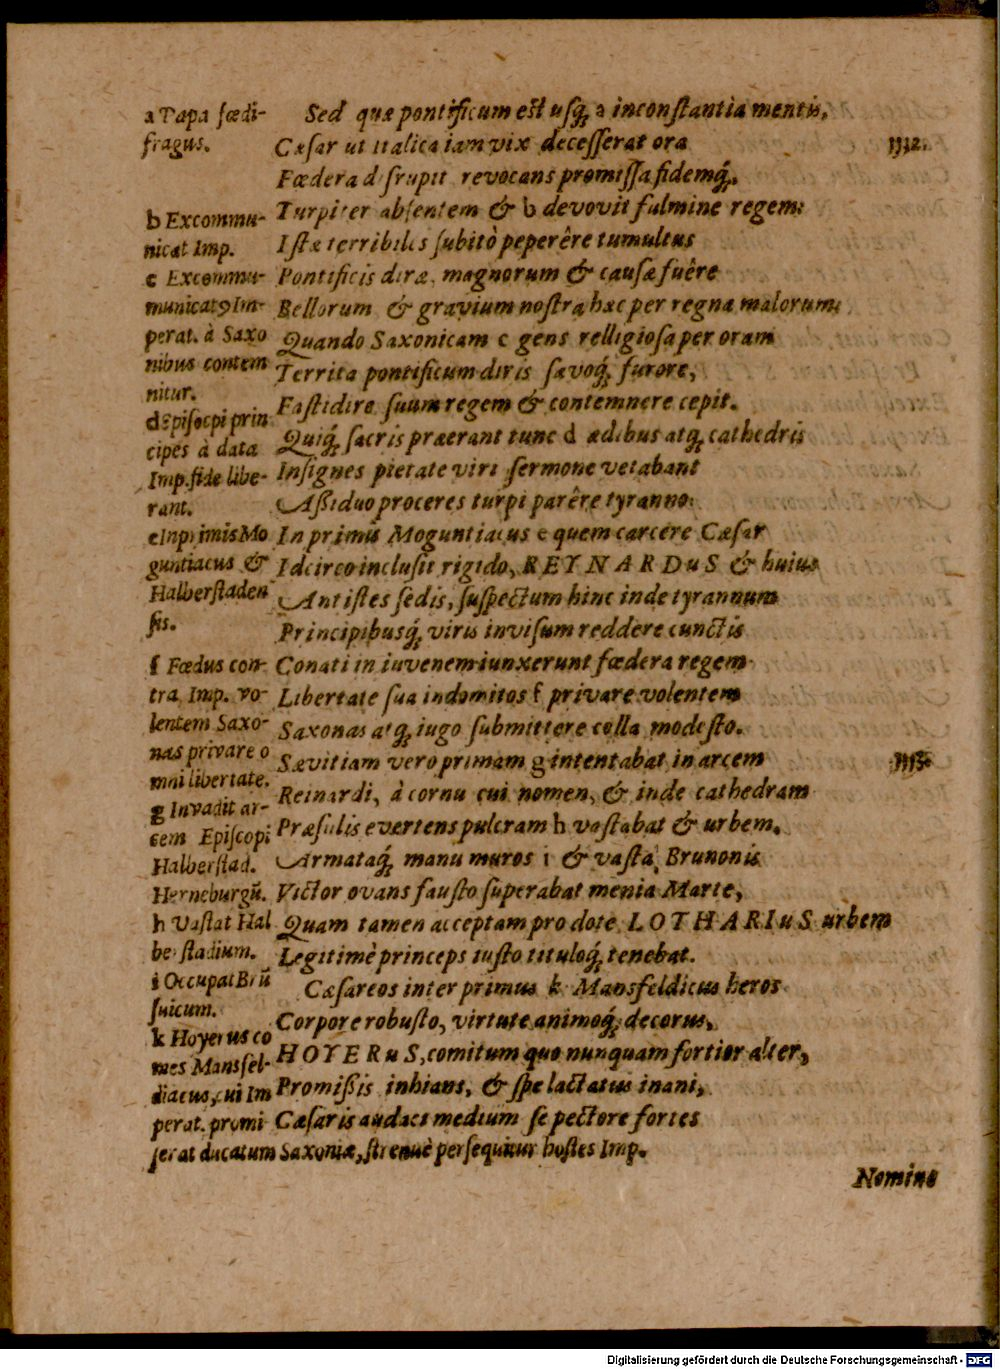 Sed quæ pontificum est usq́; a inconstantia mentis,
Cæsar ut Italica iam vix decesserat ora
1112.
Fœdera disrupit revocans promissa fidemq́;.
Turpiter absentem & b devovit fulmine regem:
Istæ terribiles subitò peperêre tumultus
Pontificis diræ, magnorum & causæ fuêre
Bellorum & gravium nostra hæc per regna malorum:
Quando Saxonicam c gens relligiosa per oram
Territa pontificum diris sævoq́; furore,
Fastidire suum regem & contemnere cepit.
Quiq́; sacris præerant tunc d ædibus atq́; cathedris
Insignes pietate viri sermone vetabant
Aßiduo proceres turpi parêre tyranno:
In primis Moguntiacus e quem carcere Cæsar
Idcirco inclusit rigido, REYNARDuS & huius
Antistes sedis, suspectum hinc inde tyrannum
Principibusq́; viris invisum reddere cunctis
Conati in iuvenem iunxerunt fœdera regem
Libertate sua indomitos f privare volentem
Saxonas atq́; iugo submittere colla modesto.
Sævitiam vero primam g intentabat in arcem
1113.
Reinardi, à cornu cui nomen, & inde cathedram
Præsulis evertens pulcram h vastabat & urbem.
Armataq́; manu muros i & vasta Brunonis
Victor ovans fausto superabat menia Marte,
Quam tamen acceptam pro dote LOTHARIuS urbem
Legitimè princeps iusto tituloq́; tenebat.
Cæsareos inter primus k Mansfeldicus heros
Corpore robusto, virtute animoq́; decorus,
HOYERuS, comitum quo nunquam fortior alter,
Promißis inhians, & spe lactatus inani,
Cæsaris audaci medium se pectore fortes
Nomine
a Papa fœdi-
fragus.
b Excommu-
nicat Imp.
c Excommu-
municatꝰ Im-
perat. à Saxo
nibus contem
nitur.
d Episocpi prin
cipes à data
Imp. fide libe-
rant.
e Inprimis Mo
guntiacus &
Halberstaden
sis.
f Fœdus con-
tra Imp. vo-
lentem Saxo-
nas privare o
mni libertate.
g Invadit ar-
cem Episcopi
Halberstad.
Herneburgũ.
h Vastat Hal
berstadium.
i Occupat Brũ
suicum.
k Hoyerus co
mes Mansfel-
diacus, cui Im
perat. promi
serat ducatum Saxoniæ, strenuè persequitur hostes Imp.
Digitalisierung gefördert durch die Deutsche Forschungsgemeinschaft - DFG